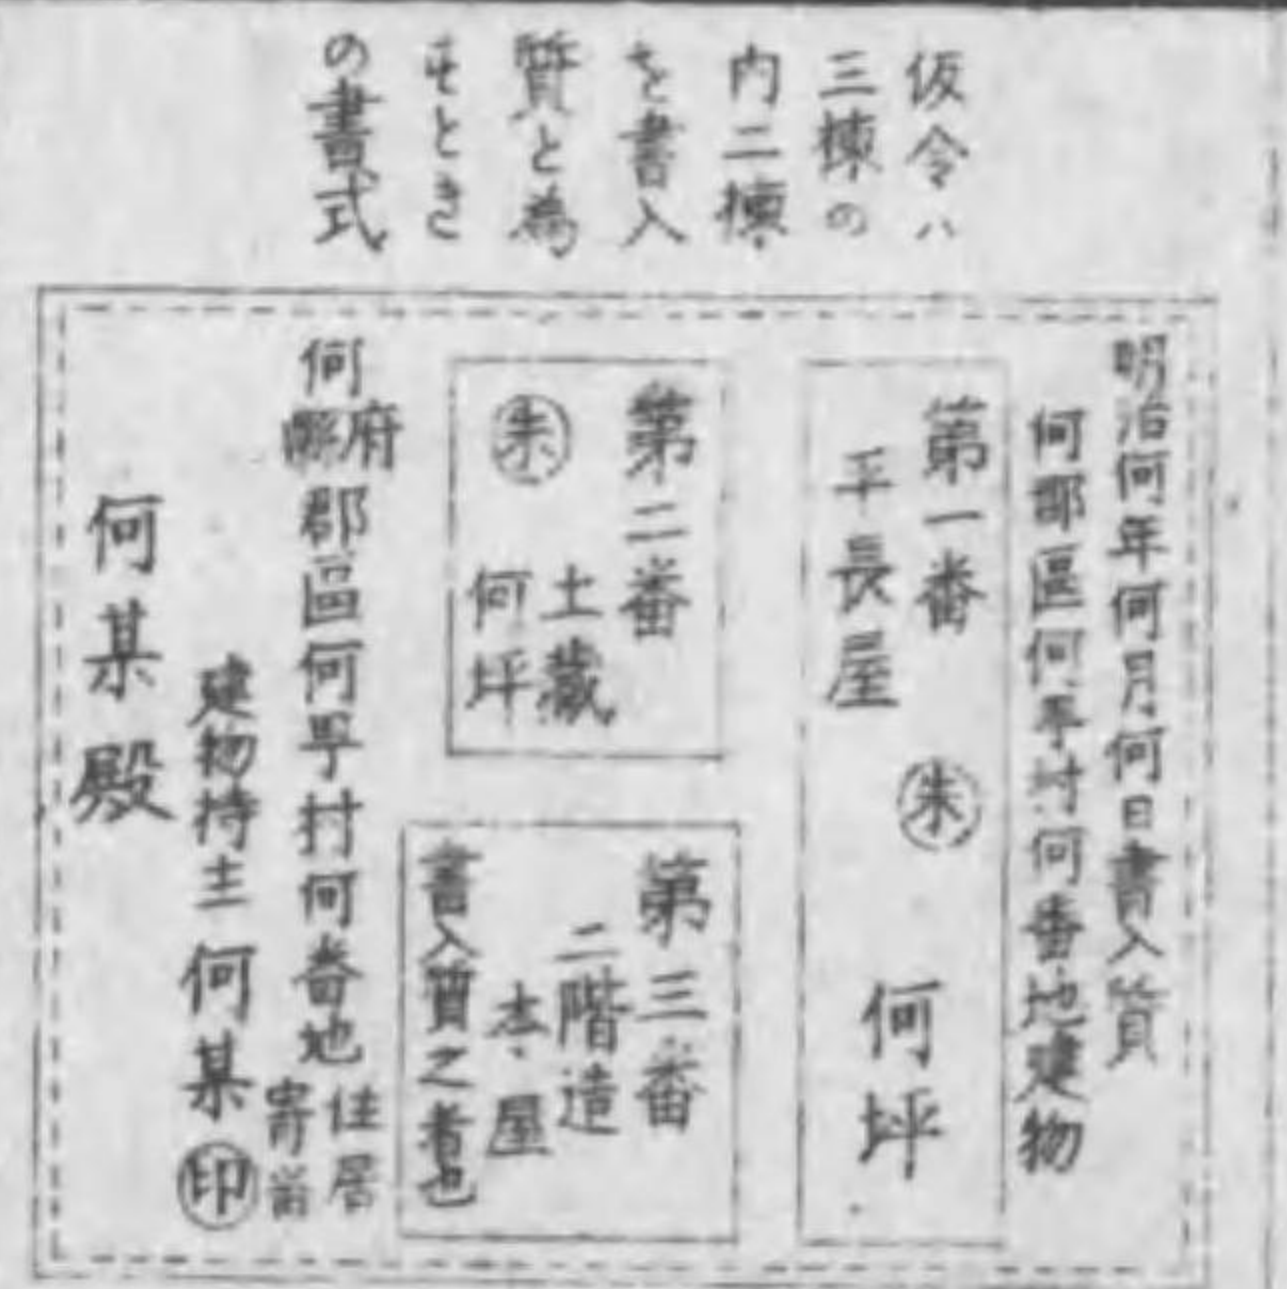 仮令ハ
三棟の
内二棟
を書入
質と為
すとき
の書式
明治何年何月何日書入質
何郡區何町村何番地建物
第一番
平長屋
㊞朱
何坪
第二番
土蔵
何坪
朱
第三番
二階造
本屋
書入質之者也
何府縣郡區何町村何番地住居寄留
建物持主何某㊞
何某殿